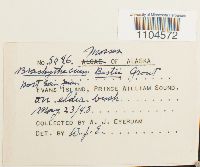 University of Minnesota Herbarium
1104572
Mosses
No. 5086. ALGAE OF ALASKA
Brachythecium Bestii Grout
EVANS ISLAND, PRINCE WILLIAM SOUND,
on elder bush
May 23/48.
COLLECTED BY W. J. EYERDAM
DET. BY W. J. E.